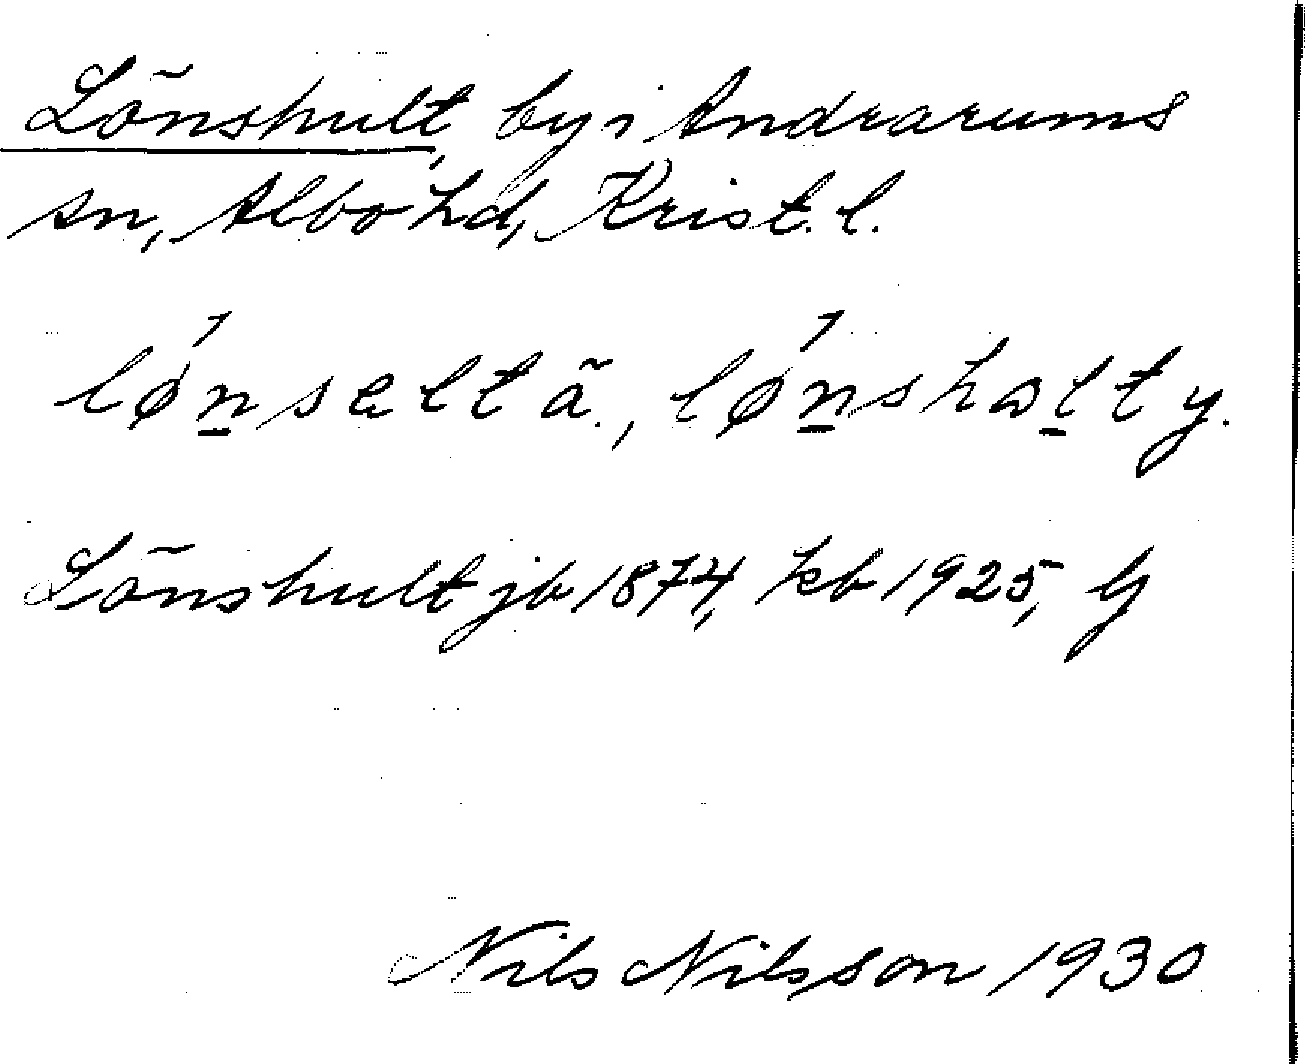 Lönshult, by i Andrarums
sn, Albo hd, Krist. l.
lǿn̲seltä., lǿn̲shɷl̲t y.
Lönshult jb 1874, kb 1925, G
Nils Nilsson 1930